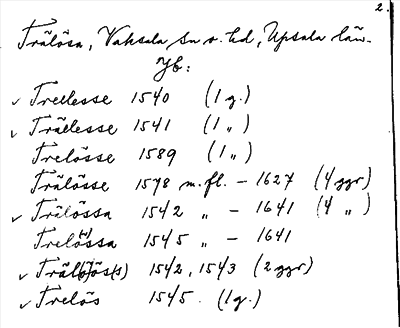 2.
Trälösa, Vaksala sn o. hd, Upsala län.
Jb:
✓ Trellesse 1540 (1 g.)
✓ Trällesse 1541 (1 „)
Trelösse 1589 (1 „)
Trälösse 1578 m.fl. – 1627 (4 ggr)
✓ Trälössa 1542 „ – 1641 (4 „)
Trelö(s)sa 1545 „ – 1641
✓ Träl(l)ös(s) 1542, 1543 (2 ggr)
✓ Trelös 1545. (1 g.)